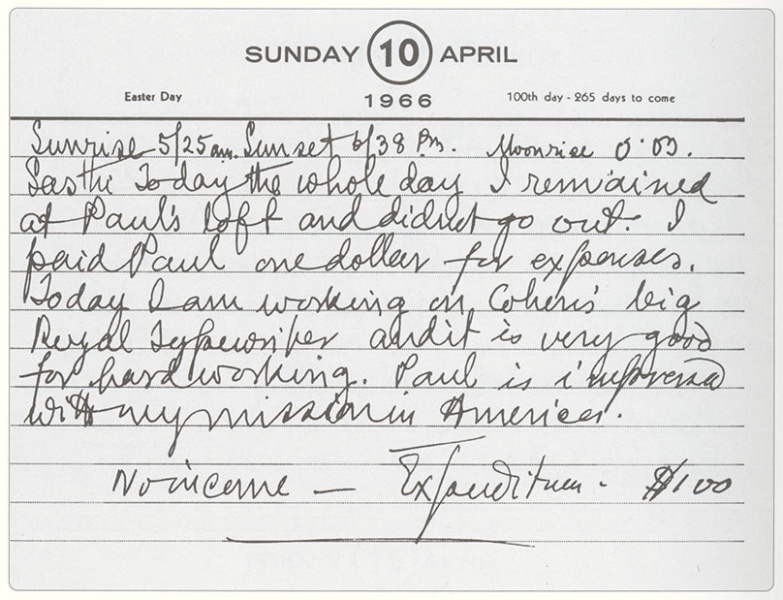 SUNDAY 10 APRIL
Easter Day 1966 100th day - 265 days to come
Sunrise 5/25 am. Sunset 6/38 Pm. Moonrise 0'03.
Sasthi Today the whole day I remained
at Paul's loft and didnt go out. I
paid Paul one dollar for expenses.
Today I am working on Cohen's big
Royal Typewriter and it is very good
for hard working. Paul is impressed
with my mission in America.
No income — Expenditure - $1 00